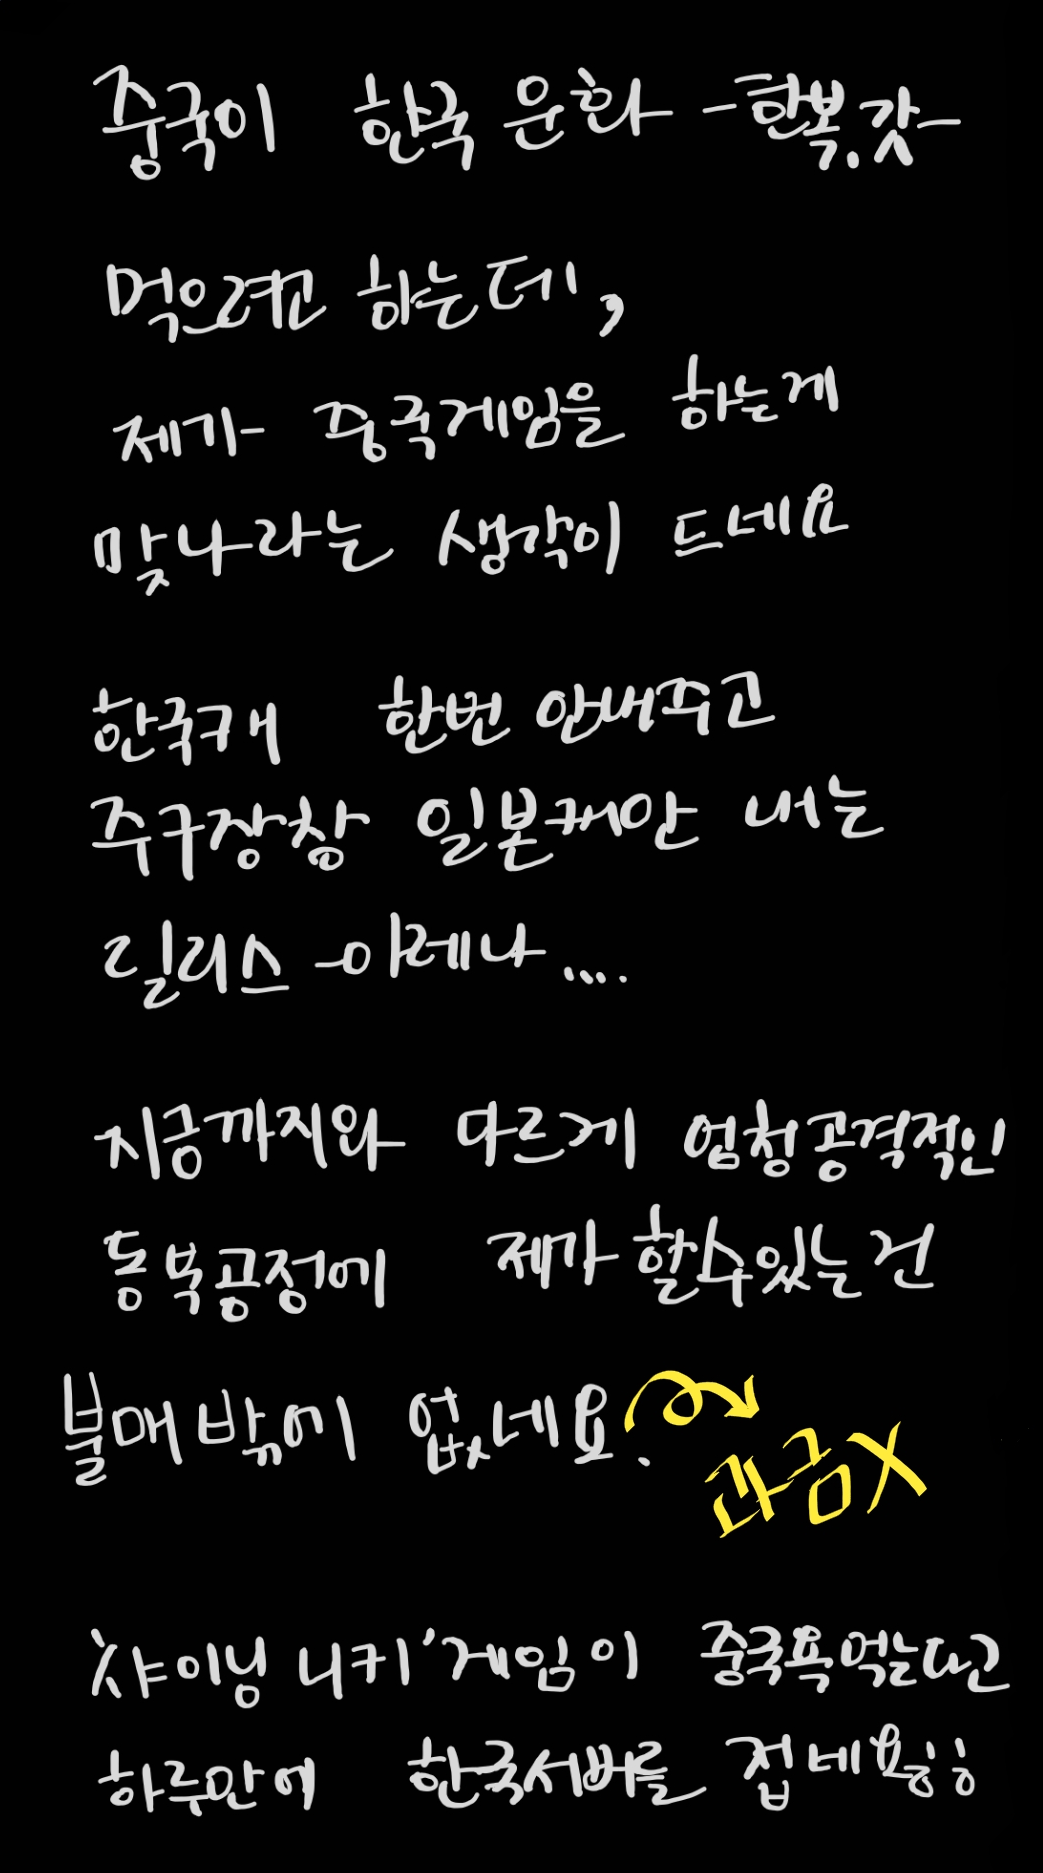 중국이 한국 문화 -한복.갓-
먹으려고 하는데,
제가 중국게임을 하는게
맞나라는 생각이 드네요
한국캐 한번 안내주고
주구장창 일본캐만 내는
릴리스 아레나....
지금까지와 다르게 엄청공격적인
동북공정에 제가 할수있는건
불매밖에 없네요.
과금X
'샤이닝 니키'게임이 중국욕먹는다고
하루만에 한국서버를 접네욯ㅎㅎ